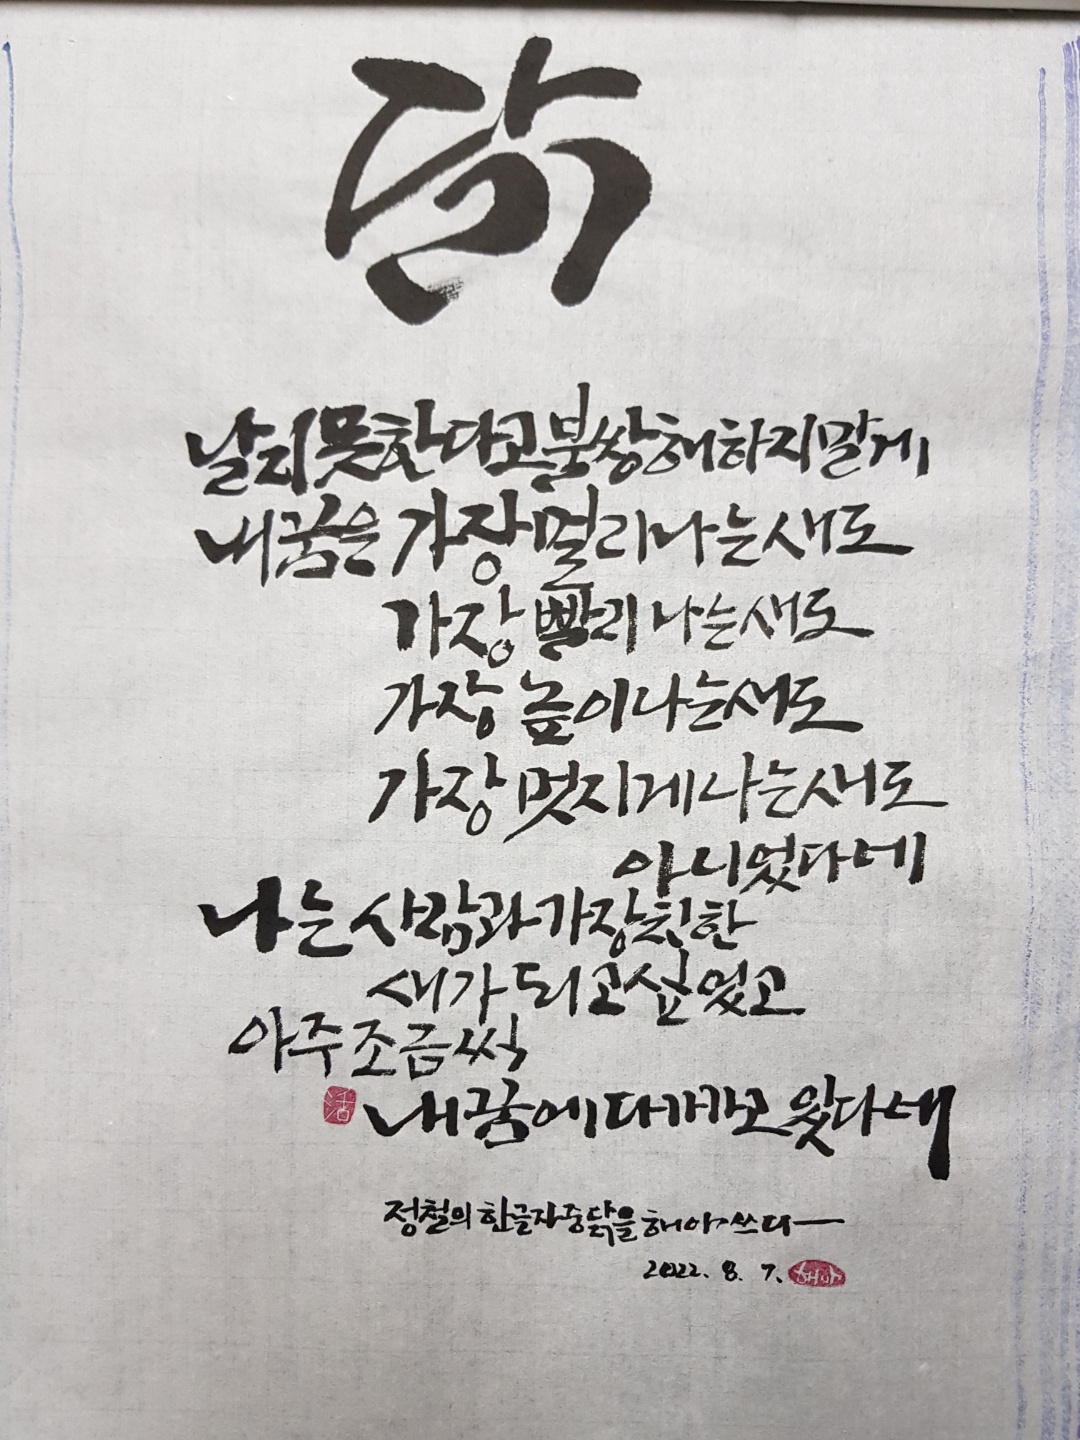 닭
날지 못한다고 불쌍해 하지 말게
내 꿈은 가장 멀리 나는 새도
가장 빨리 나는 새도
가장 높이 나는 새도
가장 멋지게 나는 새도
아니었다네
나는 사람과 가장 친한
새가 되고 싶었고
아주 조금씩
내 꿈에 다가가고 있다네
정철의 한글자 중 닭을 해아 쓰다
2022. 8. 7. 해아